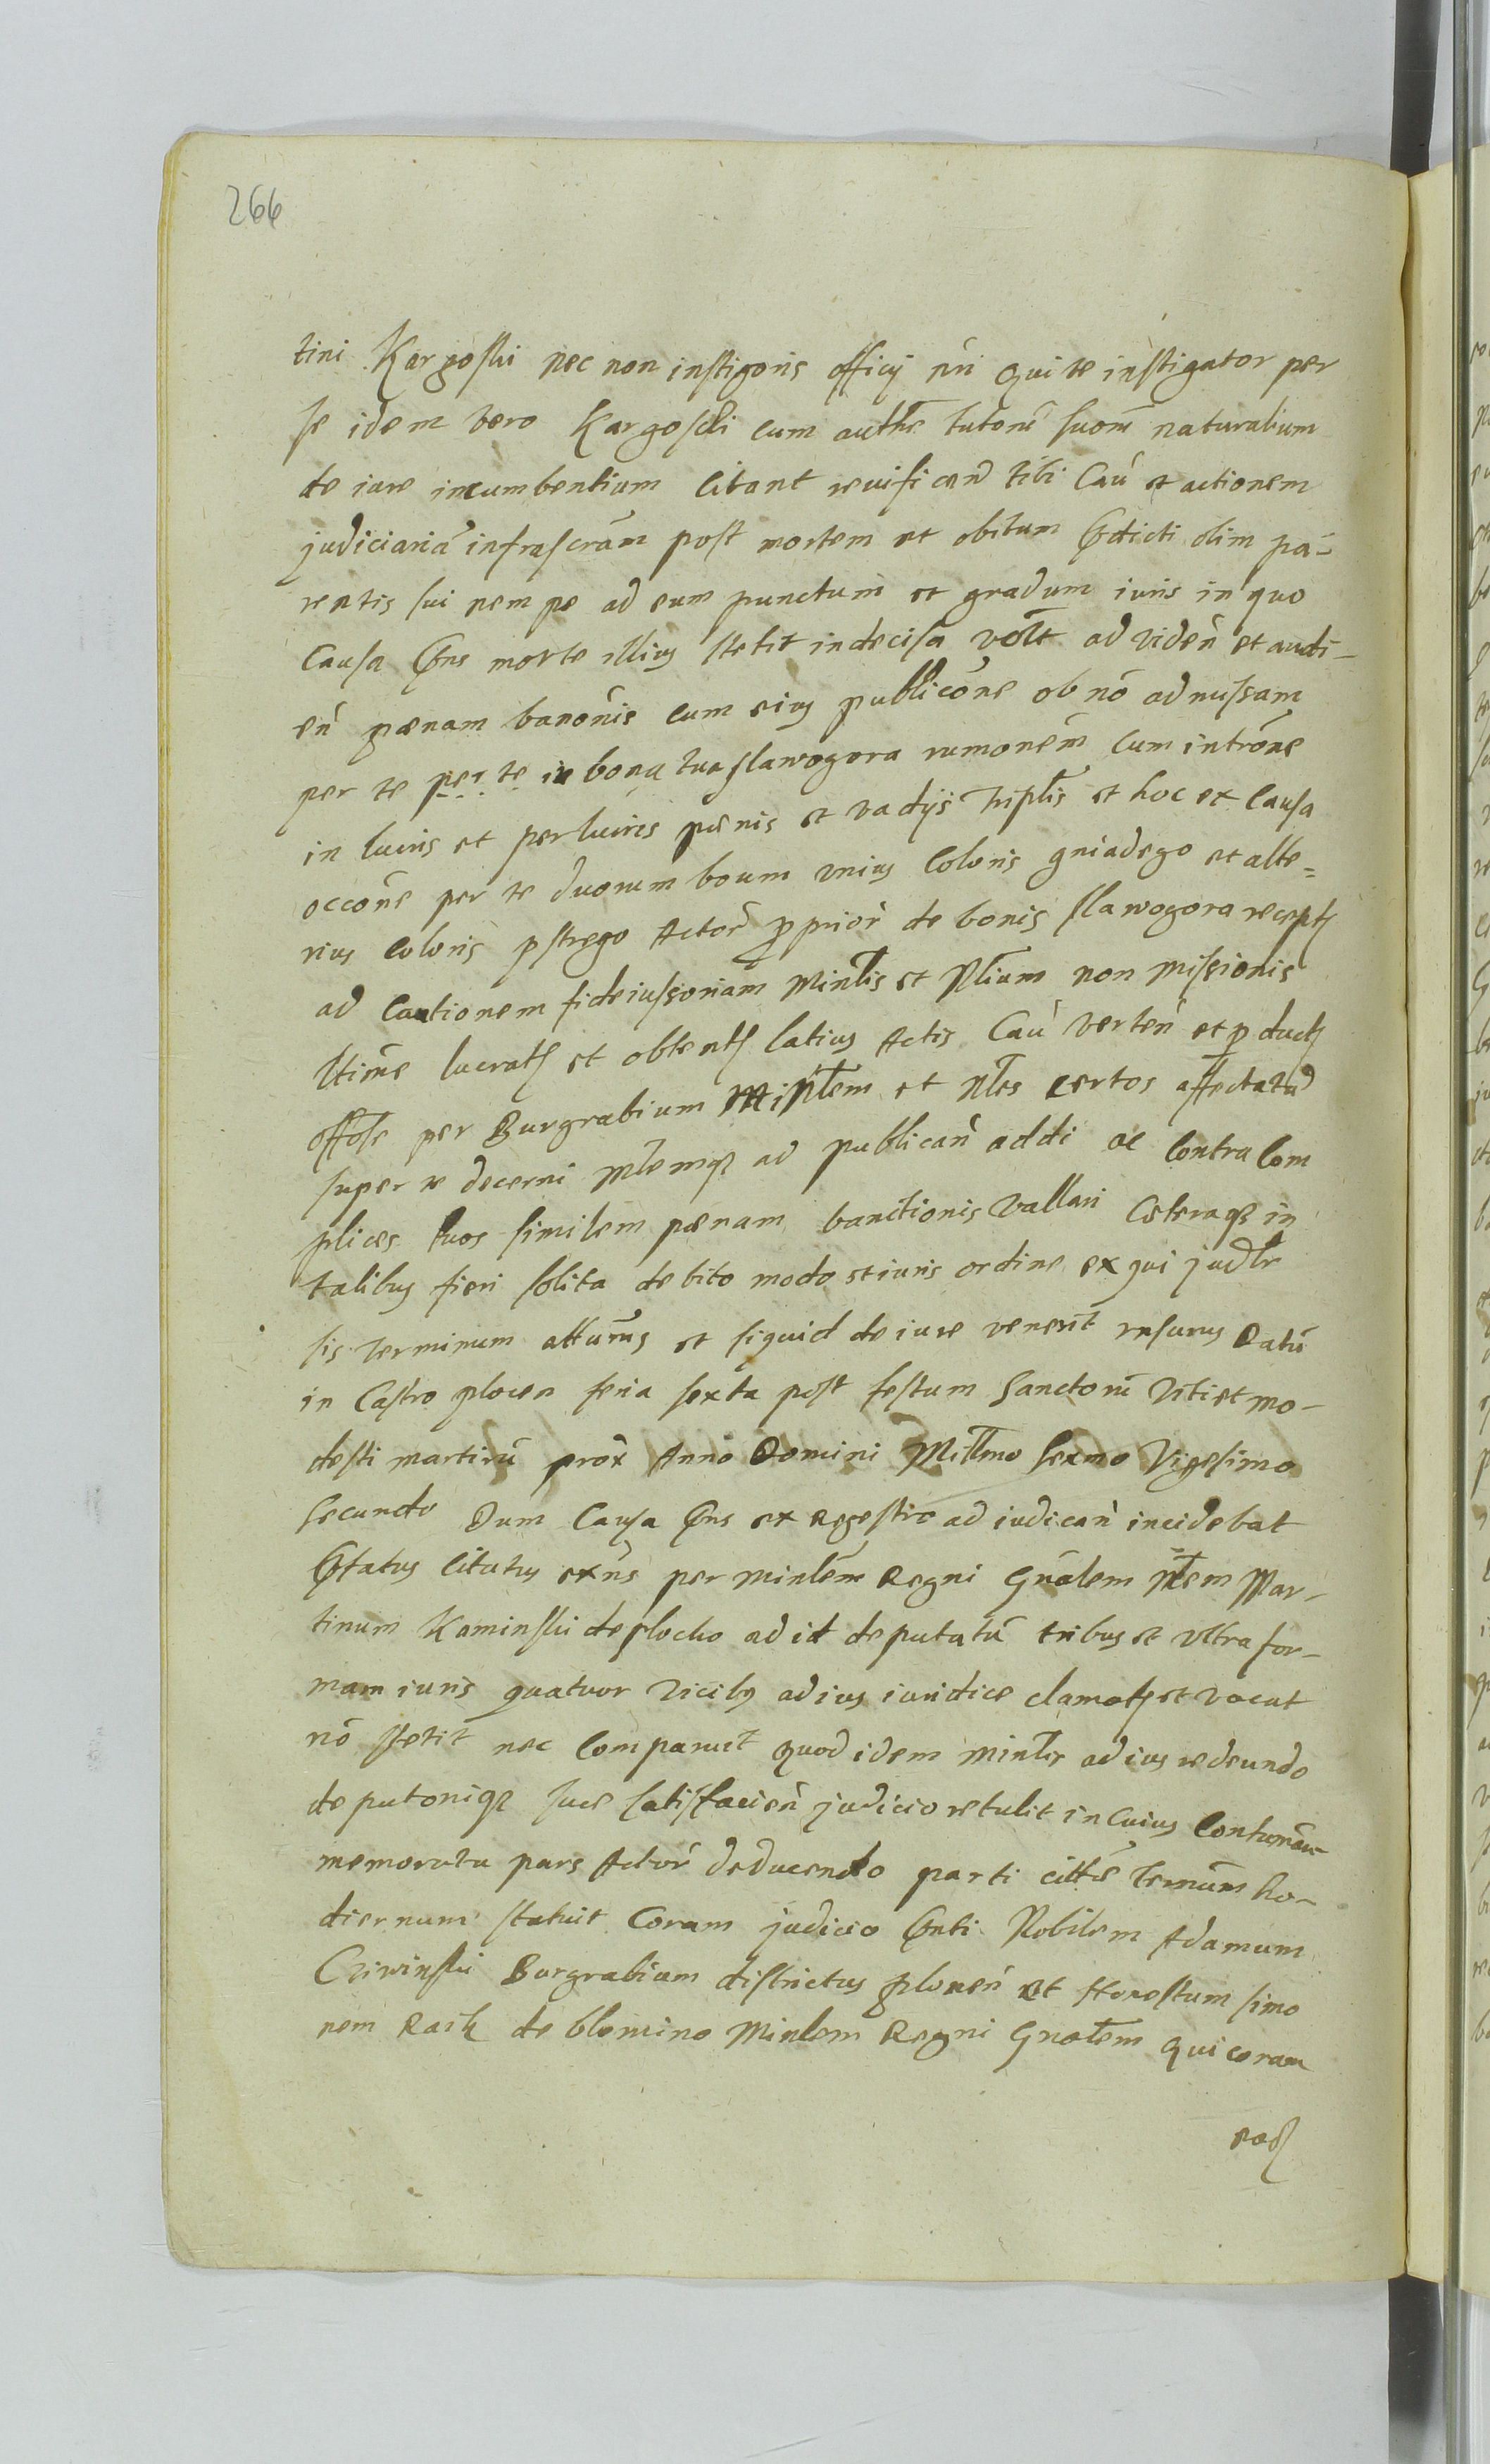 266
tini Kargoski nec non instigoris officij nri Qui te instigator per
se idem vero Kargoschi cum authe tutorũ suorũ naturalium
de iure incumbentium Citant reuificand tibi Cau et actionem
judiciariã infrascram post mortem et obitum Pdicti olim pa-
rentis sui nempe ad eum punctum et gradum iuris in quo
Causa Pns morte illius stetit indecisa volt ad viden et audi-
en pœnam banonis cum eius publicone ob nõ admissam
per te per te in bona tua slawogora rumonem cum introne
in lucris et perlucris pœnis et vadijs triplis et hoc ex Causa
occone per te duorum boum vnius Coloris gniadego et alte=
rius coloris pstrego Actor proprior de bonis slawogora recepts
ad Cautionem fideiussoriam Minlis et Nlium non missionis
ltime lucrats et obtents latius Actis Cau verten et produts
offose per Burgrabium Minlem et Nles certos affectatad
super te decerni Mlemq ad publican addi ac Contra Com
plices tuos similem pœnam banitionis vallari Ceteraq in
talibus fieri solita debito modo et iuris ordine exqui judlr
sis Terminum atturus et siquid de iure venerit rnsurus Datũ
in Castro plocen feria sexta post festum Sanctorũ Viti et mo-
desti martirũ prox Anno Domini Millmo Sexmo Vigesimo
Secundo Dum Causa Pns ex Regestro ad iudican incidebat
Pfatus Citatus exns per minlem Regni Gnalem Nlem Mar-
tinum Kaminski de plocko ad id deputatũ tribus et vltra for-
mam iuris quatuor vicibus ad ius iuridice clamats et vocat
nõ stetit nec Comparuit quod idem minlr ad ius redeundo
deputoniq suce satisfacien judicio retulit in Cuius Contumam
memorata pars Actor deducendo parti cittæ Termum ho-
diernum statuit Coram judicio Pnti Nobilem Adamum
Criwinski Burgrabium districtus plonen et Honestum simo
nem Raik de blomino Minlem Regni Gnalem qui coram
eads